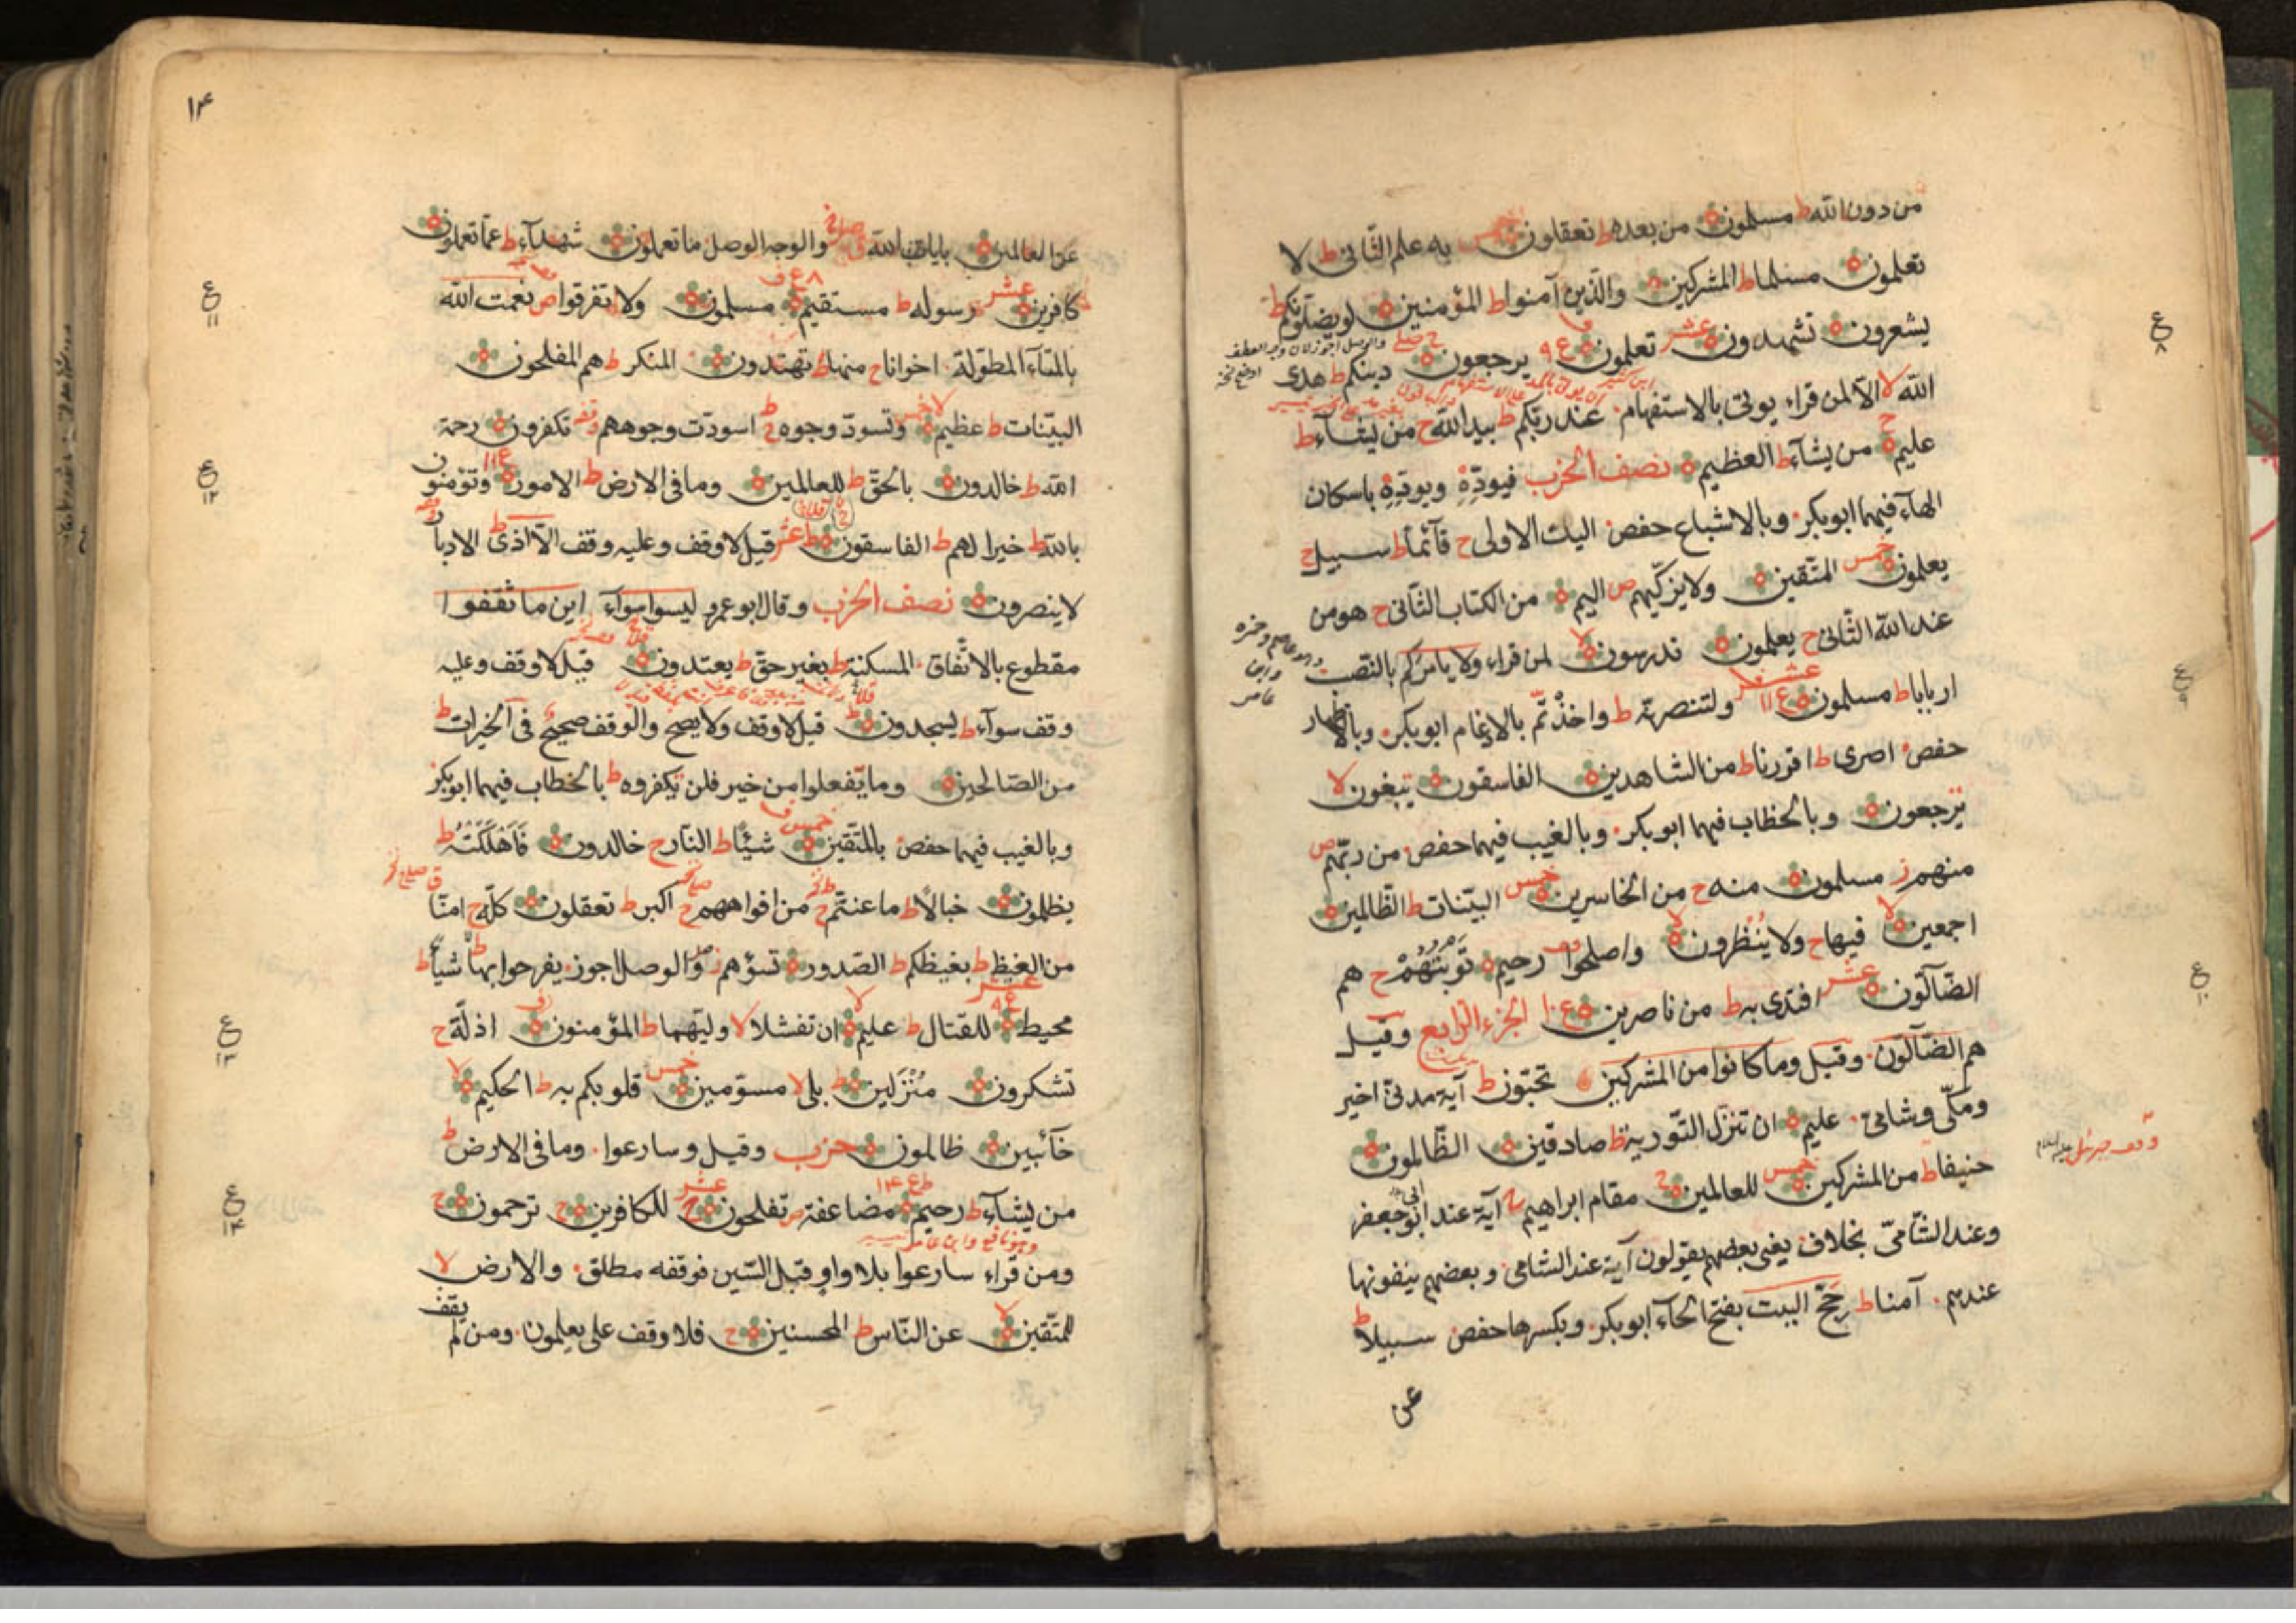 من دون الله ط مسلمون من بعده ط تعقلون خمس به علم الثانى ط لا
تعلمون مسلما ط المشركين والذين آمنوا ط المؤمنين لو يضلونكم ط
يشعرون تشهدون عشر تعلمون ع ٩ يرجعون دينكم ط هدى
الله لا الا لمن قراء يوتى بالاستفهام عند ربكم ط بيد الله ح من يشاء ط
عليم ح من يشاء ط العظيم نصف الحزب فيودّه ويودّه باسكان
الهاء فيهما ابو بكر وبالاشباع حفص اليك الاولى ح قآئما ط سبيل ح
يعلمون خمس المتقين ولا يزكيهم ص اليم من الكتاب الثانى ح هو من
عند الله الثانى ح يعلمون تدرسون لا لمن قراء ولا يامركم بالنصب
والعاصم وحمزه
وابن
عامر
اربابا ط مسلمون عشر ع ١١ ولتنصرنه ط واخذتم بالادغام ابو بكر وبالاظهار
حفص اصرى ط اقررنا ط من الشاهدين الفاسقون تبغون لا
ترجعون وبالخطاب فيهما ابو بكر وبالغيب فيهما حفص من ربهم ص
منهم ز مسلمون منه ح من الخاسرين خمس البينات ط الظالمين
اجمعين لا فيها ح ولا ينظرون لا واصلحوا رحيم توبتهم ح هم
الضآلون عشر افتدى به ط من ناصرين ع ١٠ الجزء الرابع وقيل
هم الضآلون وقيل وما كانوا من المشركين تحبون ط آية مدنى اخير
ومكى وشامى عليم ان تنزل التورية ط صادقين الظالمون
حنيفا ط من المشركين خمس للعالمين ح مقام ابراهيم ح آية عند ابى جعفر
وعند الشامى بخلاف يعنى بعضهم يقولون آية عند الشامى وبعضهم ينفونها
عندهم آمنا ط حج البيت بفتح الحاء ابو بكر وبكسرها حفص سبيلا ط
عن
ع
٨
ع
٩
ع
١٠
١٣
عن العالمين بايات الله والوجه الوصل ما تعملون شهدآء ط عما تعملون
كافرين عشر رسوله ط مستقيم ع ٨ مسلمون ولا تفرقوا ص نعمت الله
بالتآء المطولة اخوانا ح منها ط تهتدون المنكر ط هم المفلحون
البينات ط عظيم لا خمس وتسود وجوه ح اسودت وجوههم وقفه تكفرون رحمة
الله ط خالدون بالحق ط للعالمين وما فى الارض ط الامور ع ١١ وتؤمنون
بالله ط خيرا لهم ط الفاسقون عشر قيل لا وقف وعليه وقف الا اذى ط الادبار
لا ينصرون نصف الحزب وقال ابو عمرو ليسوا سوآء اين ما ثقفوا
مقطوع بالاتفاق المسكنة ط بغير حق ط يعتدون قيل لا وقف وعليه
وقف سوآء ط يسجدون ط قيل لا وقف ولا يصح والوقف صحيح فى الخيرات ط
من الصالحين وما تفعلوا من خير فلن تكفروه ط بالخطاب فيهما ابو بكر
وبالغيب فيهما حفص بالمتقين خمس شيئا ط النار ح خالدون فاهلكته ط
يظلمون خبالا ط ما عنتم ح من افواههم ح اكبر ط تعقلون كله ح امنا
من الغيظ ط بغيظكم ط الصدور تسؤهم ز والوصل اجوز يفرحوا بها ط شيئا ط
محيط عشر للقتال ط عليم لا ان تفشلا لا وليهما ط المؤمنون اذلة ح
تشكرون منزلين ط بلى لا مسومين خمس قلوبكم به ط الحكيم لا
خآئبين ظالمون حزب وقيل وسارعوا وما فى الارض ط
من يشآء ط رحيم ع ١٣ مضاعفة ص تفلحون ح عشر للكافرين ح ترحمون ح
ومن قراء سارعوا بلا واو قبل السين فوقفه مطلق والارض لا
للمتقين لا عن الناس ط المحسنين ح فلا وقف على يعلمون ومن لم يقف
ع
١١
ع
١٢
ع
١٣
ع
١٤